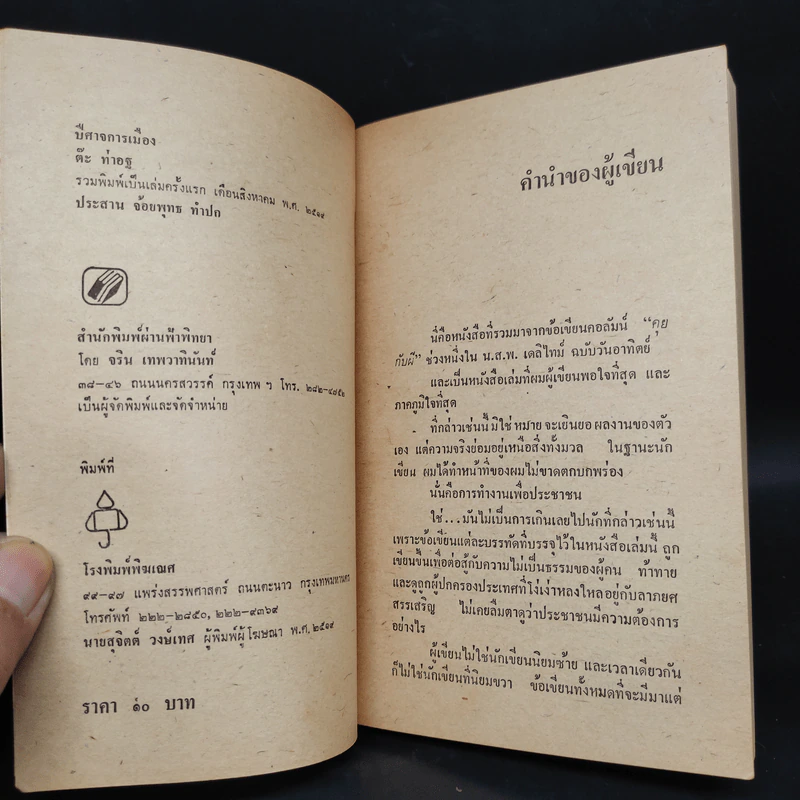 ปีศาจการเมือง
ต๊ะ ท่าอฐ
รวมพิมพ์เป็นเล่มครั้งแรก เดือนสิงหาคม พ.ศ. ๒๕๑๙
ประสาน จ้อยพุทธ ทำปก
สำนักพิมพ์ผ่านฟ้าพิทยา
โดย จริน เทพวาทินันท์
๓๘–๔๖ ถนนนครสวรรค์ กรุงเทพ ฯ โทร. ๒๘๒–๔๘๕๒
เป็นผู้จัดพิมพ์และจัดจำหน่าย
พิมพ์ที่
โรงพิมพ์พิฆเณศ
๙๙–๙๗ แพร่งสรรพศาสตร์ ถนนตะนาว กรุงเทพมหานคร
โทรศัพท์ ๒๒๒–๒๘๕๐, ๒๒๒–๙๓๖๙
นายสุจิตต์ วงษ์เทศ ผู้พิมพ์ผู้โฆษณา พ.ศ. ๒๕๑๙
ราคา ๑๐ บาท
คำนำของผู้เขียน
นี่คือหนังสือที่รวมมาจากข้อเขียนคอลัมน์ “คุย
กับผี” ช่วงหนึ่งใน น.ส.พ. เดลิไทม์ ฉบับวันอาทิตย์
และเป็นหนังสือเล่มที่ผมผู้เขียนพอใจที่สุด และ
ภาคภูมิใจที่สุด
ที่กล่าวเช่นนี้ มิใช่หมายจะเยินยอ ผลงานของตัว
เอง แต่ความจริงย่อมอยู่เหนือสิ่งทั้งมวล ในฐานะนัก
เขียน ผมได้ทำหน้าที่ของผมไม่ขาดตกบกพร่อง
นั่นคือการทำงานเพื่อประชาชน
ใช่...มันไม่เป็นการเกินเลยไปนักที่กล่าวเช่นนี้
เพราะข้อเขียนแต่ละบรรทัดที่บรรจุไว้ในหนังสือเล่มนี้ ถูก
เขียนขึ้นเพื่อต่อสู้กับความไม่เป็นธรรมของผู้คน ท้าทาย
และดูถูกผู้ปกครองประเทศที่โง่เง่าหลงใหลอยู่กับลาภยศ
สรรเสริญ ไม่เคยลืมตาดูว่าประชาชนมีความต้องการ
อย่างไร
ผู้เขียนไม่ใช่นักเขียนนิยมซ้าย และเวลาเดียวกัน
ก็ไม่ใช่นักเขียนที่นิยมขวา ข้อเขียนทั้งหมดที่จะมีมาแต่